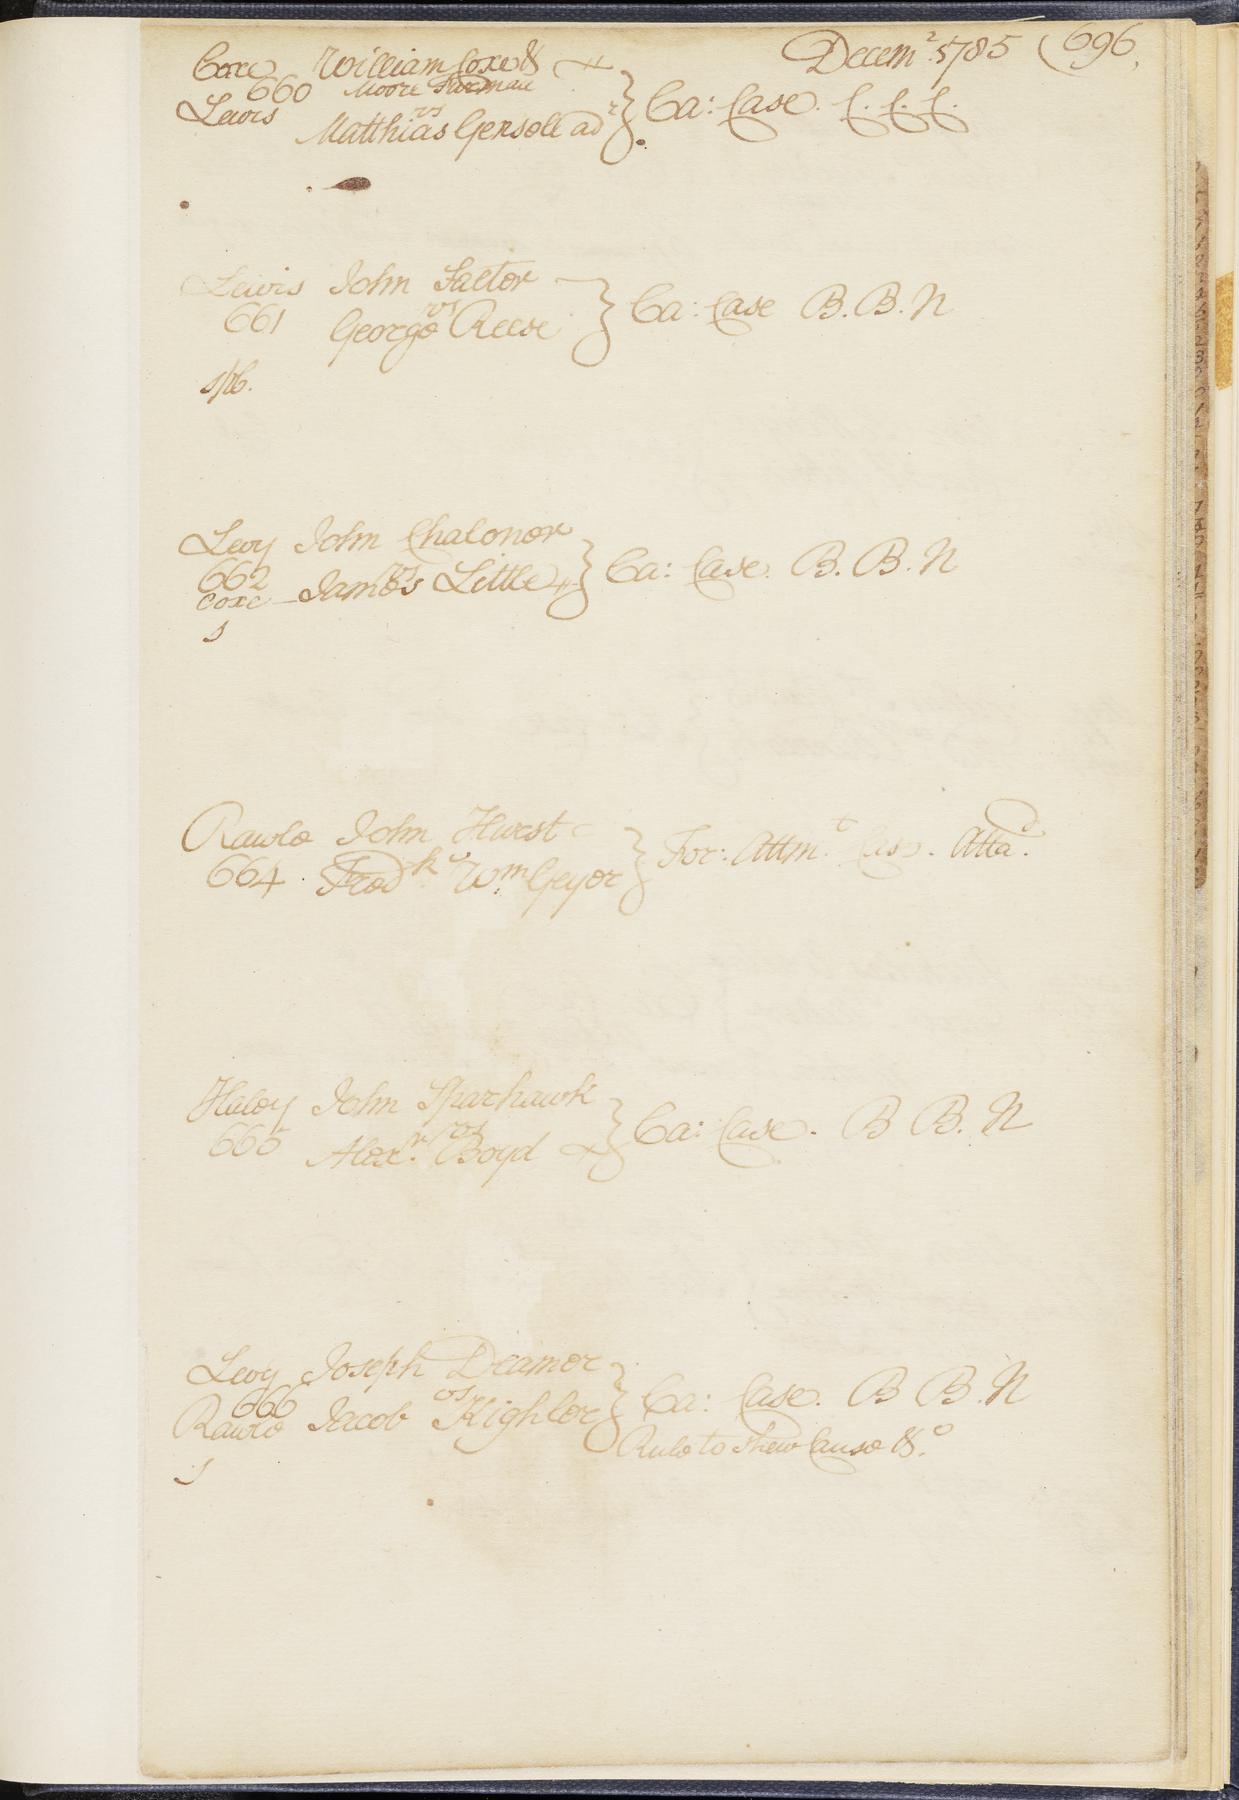 Decemr. 1785 (696,
Coxe William Coxe &
660 Moore Furman
Lewis vs
Matthias Gensell adr } Ca: Case. C. C. C.
Lewis John Factor
661 vs } Ca: Case B. B. N
George Reese
spb.
Levy John Chalonor
662 vs } Ca: Case. B. B. N
Coxe James Little
s
Rawle John Hurst
664 Fredk. vs Wm. Geyer } For: Attmt. Case. Attad.
Haley John Sparhawk
665 vs } Ca: Case. B B. N
Alexr. Boyd
Levy Joseph Deamer
666 vs } Ca: Case. B B. N
Rawle Jacob Kighler
Rule to shew Cause &c.
s